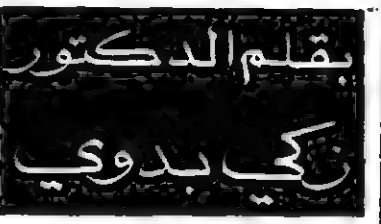 بقلم الدكتور
زكي بدوي